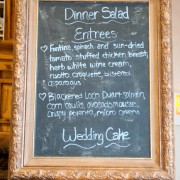 Dinner Salad
Entrees
♡ Fontina, spinach and sun-dried
tomato stuffed chicken breast,
herb white wine cream,
risotto croquette, blistered
asparagus
♡ Blackened Loch Duart salmon,
corn coulis, avocado mousse,
crispy potato, micro greens
Wedding Cake